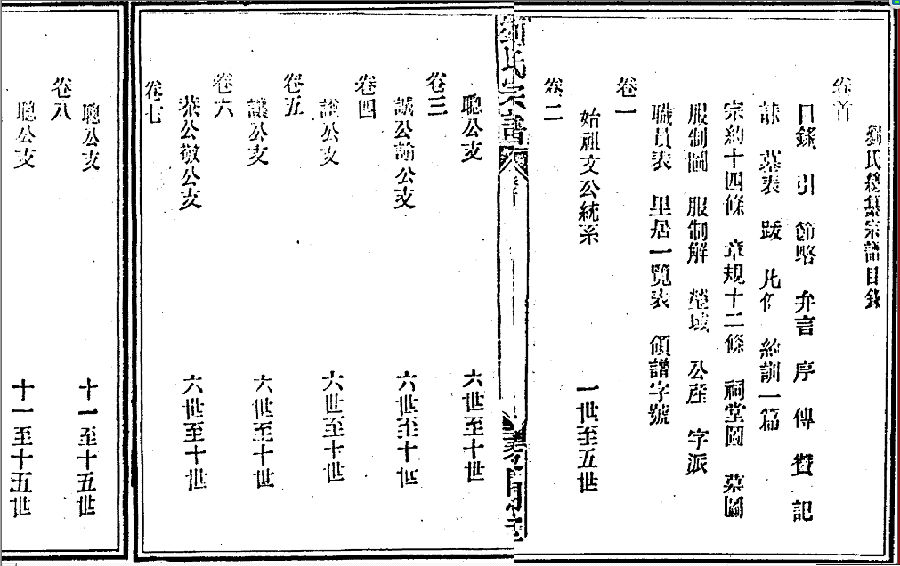 氏續纂宗譜目錄
卷首
目錄 引 節略 弁言 序 傳 贊 記
誄 墓表 跋 凡例 約訓一篇
宗約十四條 章規十二條 祠堂圖 墓圖
服制圖 服制解 塋域 公產 字派
職員表 里居一覽表 領譜字號
卷一
始祖文公統系 一世至五世
卷二
氏宗譜 卷首
聰公支 六世至十世
卷三
誠公諭公支 六世至十世
卷四
公支 六世至十世
卷五
議公支 六世至十世
卷六
恭公敬公支 六世至十世
卷七
聰公支 十一至十五世
卷八
聰公支 十一至十五世